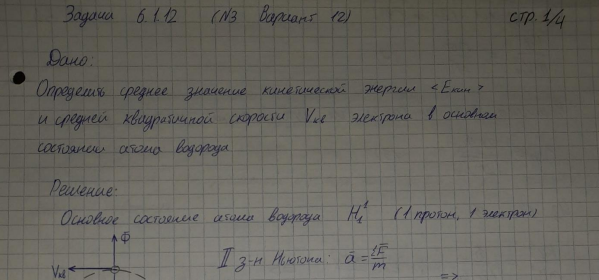 Задача 6.1.12 (N3 Вариант 12) стр. 1/4
Дано:
Определить среднее значение кинетической энергии <Eкин>
и средней квадратичной скорости Vкв электрона в основном
состоянии атома водорода
Решение:
Основное состояние атома водорода H₁¹ (1 протон, 1 электрон)
Vкв
II з-н Ньютона: a̅ = F̅/m =>